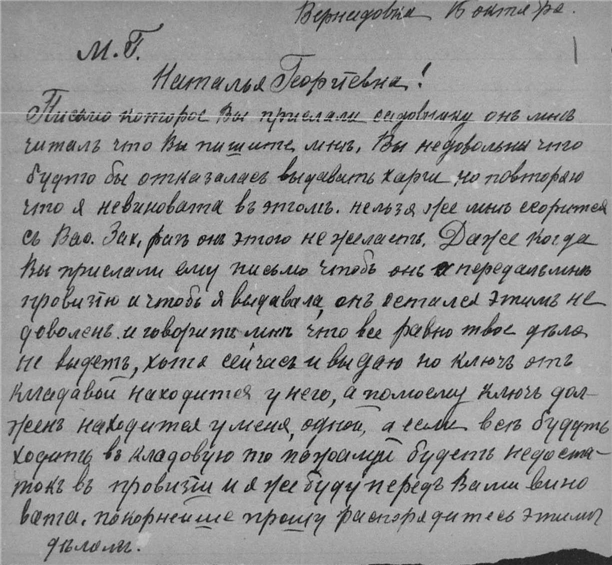 Вернадовка 5 октября.
М. Г.
Наталья Георгіевна!
Письмо которое Вы прислали садовнику онъ мнѣ
читалъ что Вы пишите мнѣ, Вы недовольны что
будто бы отказалась выдавать харчи но повторяю
что я невиновата въ этомъ. нельзя же мнѣ ссорится
съ Вас. Зах, разъ онъ этого не желаетъ. Даже когда
Вы прислали ему письмо чтобъ онъ передалъ мнѣ
провизію и чтобъ я выдавала, онъ остался этимъ не
доволенъ. и говоритъ мнѣ что все равно твое дѣло
не выдетъ, хотя сейчасъ и выдаю но ключъ отъ
кладавой находится у него, а помоему ключъ дол-
женъ находится у меня, одной, а если всѣ будутъ
ходить въ кладовую то пожалуй будетъ недоста-
токъ въ провизіи и я же буду передъ Вами вино
вата. покорнейше прошу распорядитесь этимъ
дѣломъ.